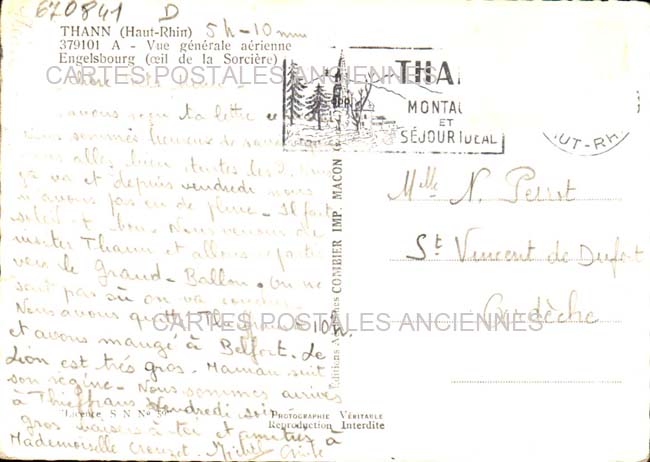 670841 D
THANN (Haut-Rhin) 5h-10
379101 A - Vue générale aérienne
Engelsbourg (œil de la Sorcière)
CARTES POSTALES ANCIENNES
THA
MONTA
ET
SÉJOUR IDEAL
UT-RH
avons reçu ta lettre
sommes heureux de savoir que
vous allez bien toutes les
ça va et depuis vendredi nous
n'avons pas eu de pluie - Il fait
soleil et bon. Nous venons de
visiter Thann et allons repartir
vers le Grand-Ballon. On ne
sait pas où on va coucher.
Nous avons quitté à 10h.
et avons mangé à Belfort. Le
Lion est très gros. Maman suit
son régime - Nous sommes arrivés
à Vendredi soir
gros baisers à toi et à
Mademoiselle Crouzet - Michel
Licence S N N°
Editions COMBIER IMP. MACON
PHOTOGRAPHIE VÉRITABLE
Reproduction Interdite
Mlle N. Perrot
St Vincent de Dufort
Ardèche
CARTES POSTALES ANCIENNES